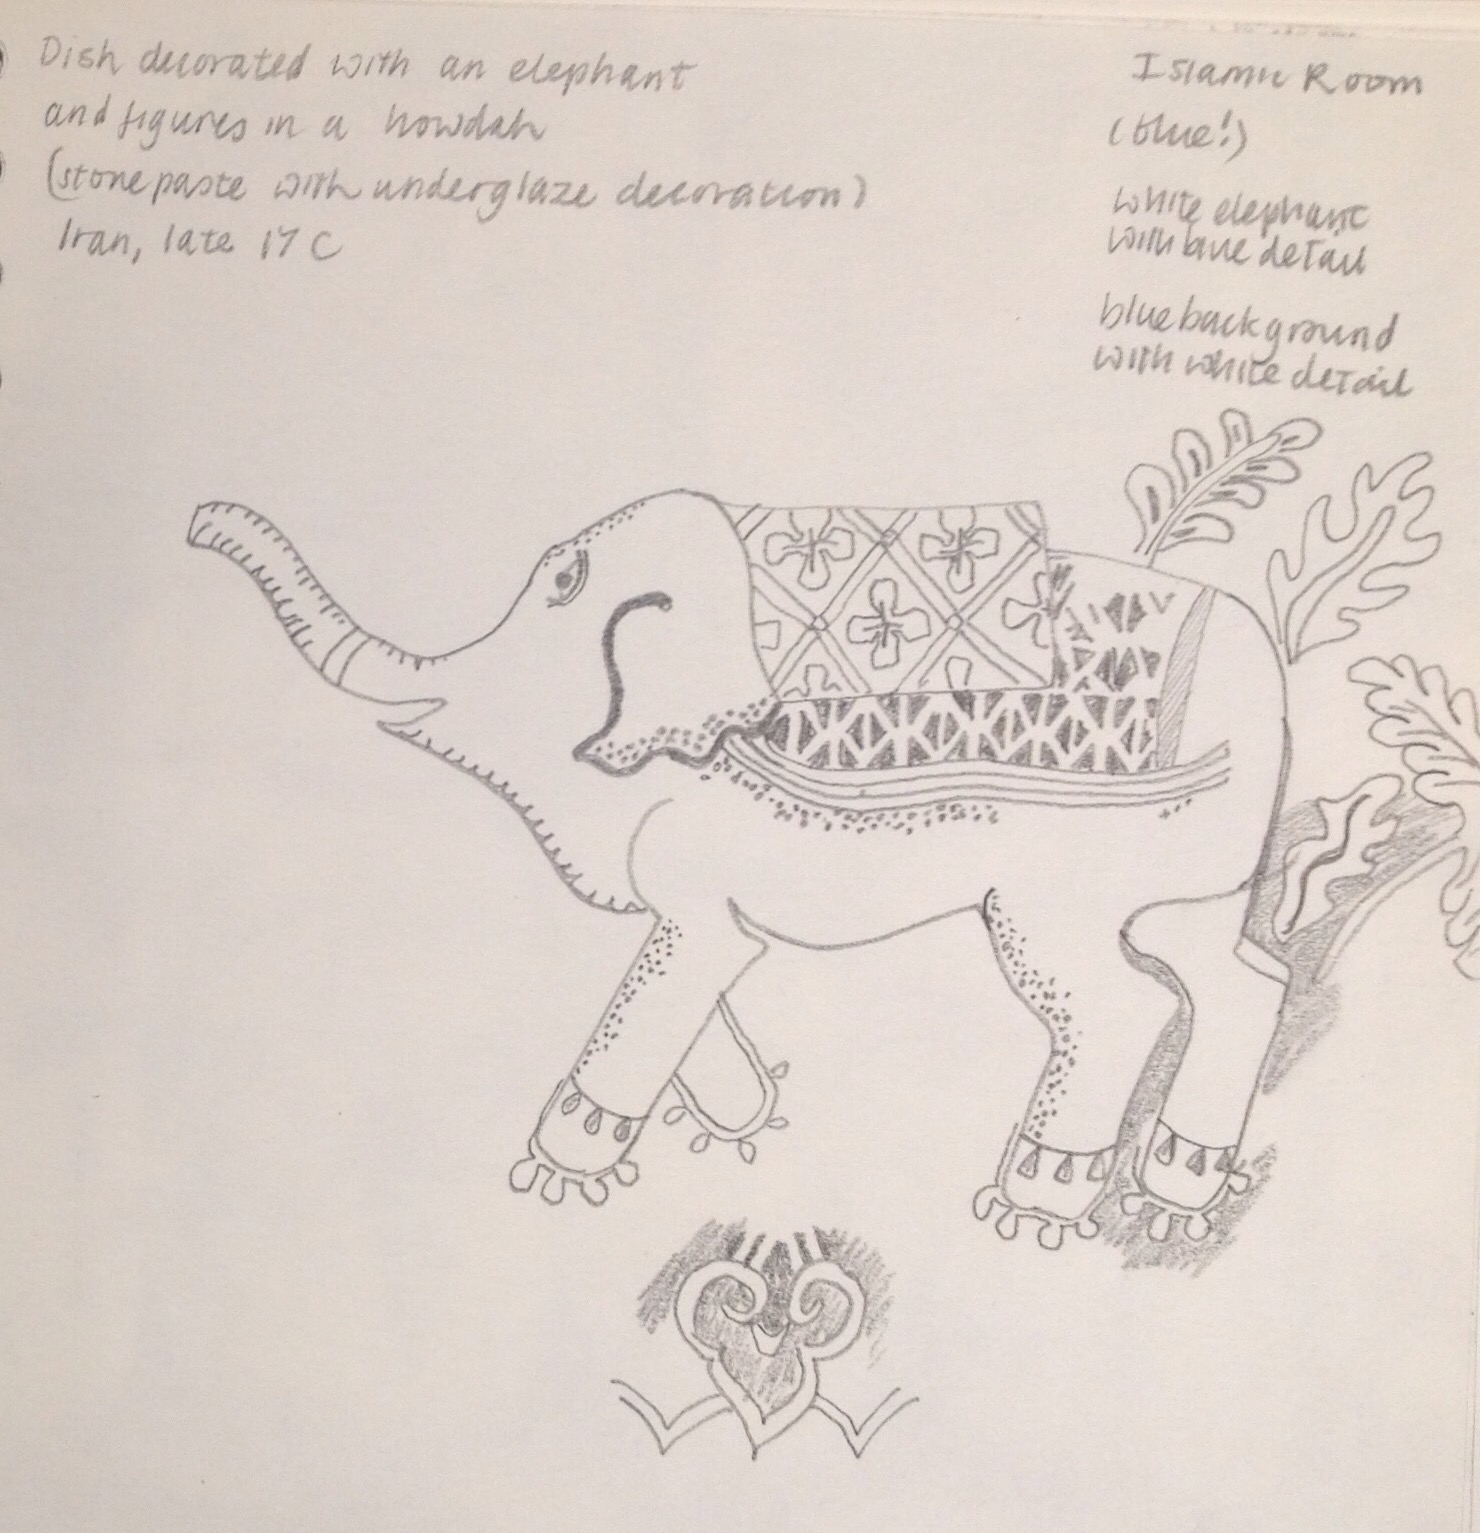 Dish decorated with an elephant
and figures in a howdah
(stonepaste with underglaze decoration)
Iran, late 17 C
Islamic Room
(blue!)
white elephant
with blue detail
blue background
with white detail